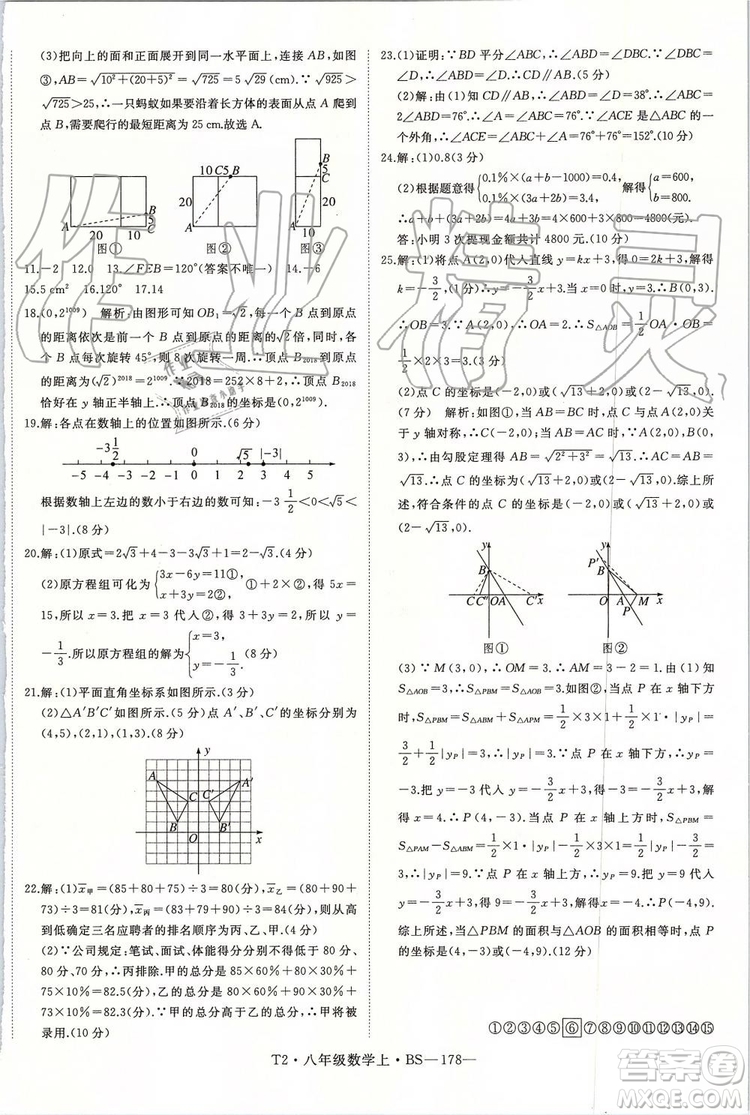 (3)把向上的面和正面展开到同一水平面上,连接 AB,如图
③,AB=√10²+(20+5)²=√725=5√29(cm).∵√925>
√725>25,∴一只蚂蚁如果要沿着长方体的表面从点 A 爬到
点 B,需要爬行的最短距离为 25 cm.故选 A.
10 C 5 B
B 5 C
A 20 10 B 5
20 A
20 A 10
图① 图② 图③
11.-2 12.0 13.∠FEB=120°(答案不唯一) 14.-6
15.5 cm² 16.120° 17.14
18.(0,2¹⁰⁰⁹) 解析:由图形可知 OB₁=√2,每一个点到原点
的距离依次是前一个点到原点的距离的√2倍,同时,各个点
每次旋转 45°,则 8 次旋转一周.∴顶点 B₂₀₁₈到原点的
距离为(√2)²⁰¹⁸=2¹⁰⁰⁹.∵2018=252×8+2,∴顶点 B₂₀₁₈
恰好在 y 轴正半轴上.∴顶点 B₂₀₁₈的坐标是(0,2¹⁰⁰⁹).
19.解:各点在数轴上的位置如图所示.
-3 1/2 0 √5 |-3|
-5 -4 -3 -2 -1 0 1 2 3 4 5
根据数轴上左边的数小于右边的数可知:-3 1/2<0<√5<
|-3|.(8 分)
20.解:(1)原式=2√3+4-3-3√3=1-√3.(4 分)
(2)原方程组可化为{3x-6y=11①, 2x+3y=5②,①+②×2,得 7x=21
15,所以 x=3.把 x=3 代入②,得 3+3y=2.所以 y=
-1/3.所以原方程组的解为{x=3, y=-1/3.(8 分)
21.解:(1)平面直角坐标系如图所示.(2 分)
(2)△A′B′C′如图所示.(5 分)点 A′、B′、C′的坐标分别为
(4,5),(2,1),(1,3).(8 分)
y
A A′
C C′
B B′
O x
22.解:(1)x̄甲=(85+80+75)÷3=80(分),x̄乙=(80+90+
73)÷3=81(分),x̄丙=(83+79+90)÷3=84(分),则从高到
低确定三名应聘者的排名顺序为丙、乙、甲.(4 分)
(2)∵公司规定:笔试、面试、体能得分分别不得低于 80 分、
80 分、70 分,∴丙排除.甲的总分是 85×60%+80×30%+
75×10%=82.5(分),乙的总分是 80×60%+90×30%+
73×10%=82.3(分).∵甲的总分高于乙的总分,∴甲将被
录用.(10 分)
23.(1)证明:∵BD 平分∠ABC,∴∠ABD=∠DBC.∵∠ABD=
∠D,∴∠D=∠DBC,∴CD∥AB.(5 分)
(2)解:由(1)知 CD∥AB,∴∠ABD=∠D=38°.∴∠ABC=
2∠ABD=76°.∴∠A=∠ABC=76°.∵∠ACE 是△ABC 的一
个外角,∴∠ACE=∠ABC+∠A=76°+76°=152°.(10 分)
24.解:(1)0.8(3 分)
(2)根据题意得{0.1%×(a+b-1000)=0.4, 0.1%×(3a+2b)=3.4, 解得{a=600, b=800.
∴a+b+(3a+2b)=4a+3b=4×600+3×800=4800(元).
答:小明 3 次提现金额共计 4800 元.(10 分)
25.解:(1)将点 A(2,0)代入直线 y=kx+3,得 0=2k+3,解得
k=-3/2,(1 分)∴y=-3/2x+3.当 x=0 时,y=3.∴B(0,3).
∴OB=3.∵A(2,0),∴OA=2.∴S△AOB=1/2OA·OB=
1/2×2×3=3.(4 分)
(2)点 C 的坐标是(-2,0)或(√13+2,0)或(2-√13,0).
(7 分) 解析:如图①,当 AB=BC 时,点 C 与点 A(2,0)关
于 y 轴对称,∴C(-2,0)符合题意;∵A(2,0),B(0,
3),由勾股定理得 AB=√2²+3²=√13.当 AC=AB 时,AC=
√13,∴点 C 的坐标是(√13+2,0)或(2-√13,0).综上所
述,符合条件的点 C 的坐标是(-2,0)或(√13+2,0)或
(2-√13,0).
y B C C″ O A C′ x
图①
P′ y B O A M P x
图②
(3)∵M(3,0),∴OM=3.∴AM=3-2=1.由(1)知
S△AOB=3,∴S△PBM=S△AOB=3.如图②,当点 P 在 x 轴下方时,
S△PBM=S△ABM+S△APM=1/2×3×1+1/2×1·|yP|=
3/2+1/2|yP|=3,∴|yP|=3.∵点 P 在 x 轴下方,∴yP=
-3.把 y=-3 代入 y=-3/2x+3,得-3=-3/2x+3,解得
x=4.∴P(4,-3).当点 P 在 x 轴上方时,S△PBM=
S△PAM-S△ABM=1/2×1×|yP|-1/2×1×3=3,∴|yP|=9.
∵点 P 在 x 轴上方,∴yP=9.把 y=9 代入 y=-3/2x+3,得
9=-3/2x+3,解得 x=-4.∴P(-4,9).
综上所述,当△PBM 的面积与△AOB 的面积相等时,点 P
的坐标为(4,-3)或(-4,9).(12 分)
①②③④⑤⑥⑦⑧⑨⑩⑪⑫⑬⑭⑮
T2·八年级数学上·BS—178—
作业精灵
答案圈
MXQE.COM